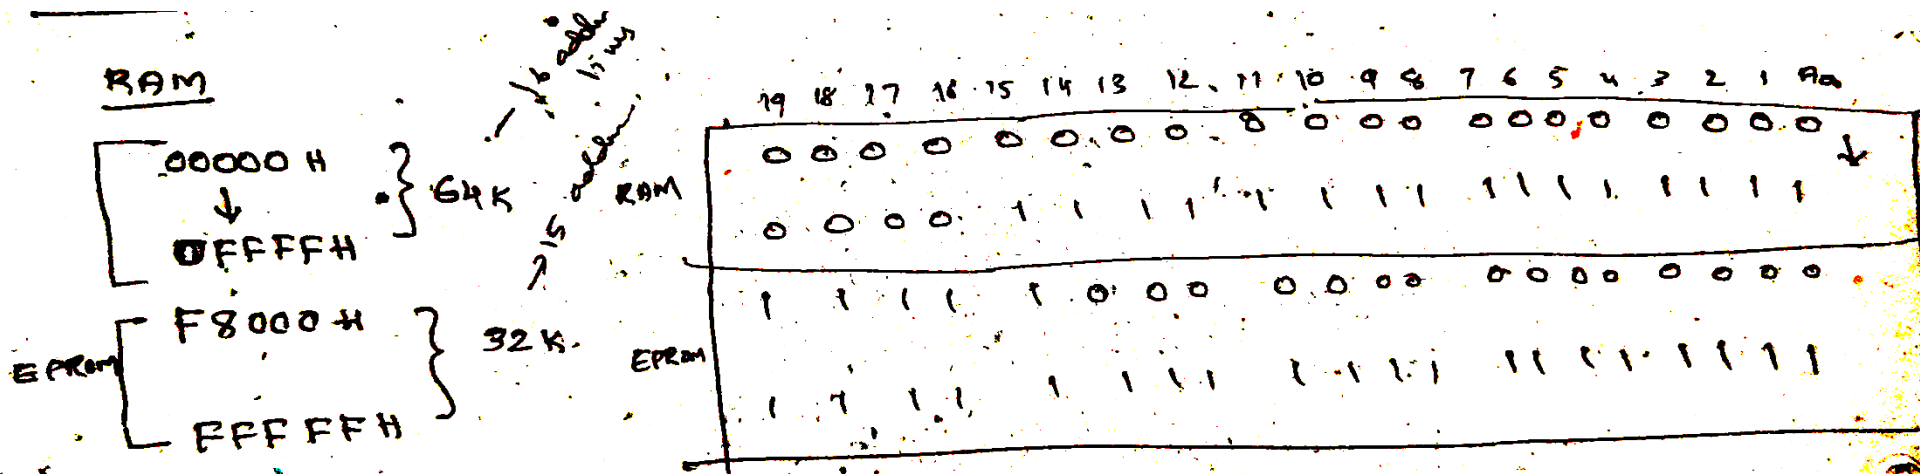 RAM
00000 H
↓
0FFFFH
} 64K
16 addr lines
F8000H
EPROM
FFFFFH
} 32K.
15 addr
19 18 17 16 15 14 13 12 11 10 9 8 7 6 5 4 3 2 1 A0
RAM
0 0 0 0 0 0 0 0 0 0 0 0 0 0 0 0 0 0 0 0 ↓
0 0 0 0 1 1 1 1 1 1 1 1 1 1 1 1 1 1 1 1
EPROM
1 1 1 1 1 0 0 0 0 0 0 0 0 0 0 0 0 0 0 0
1 1 1 1 1 1 1 1 1 1 1 1 1 1 1 1 1 1 1 1